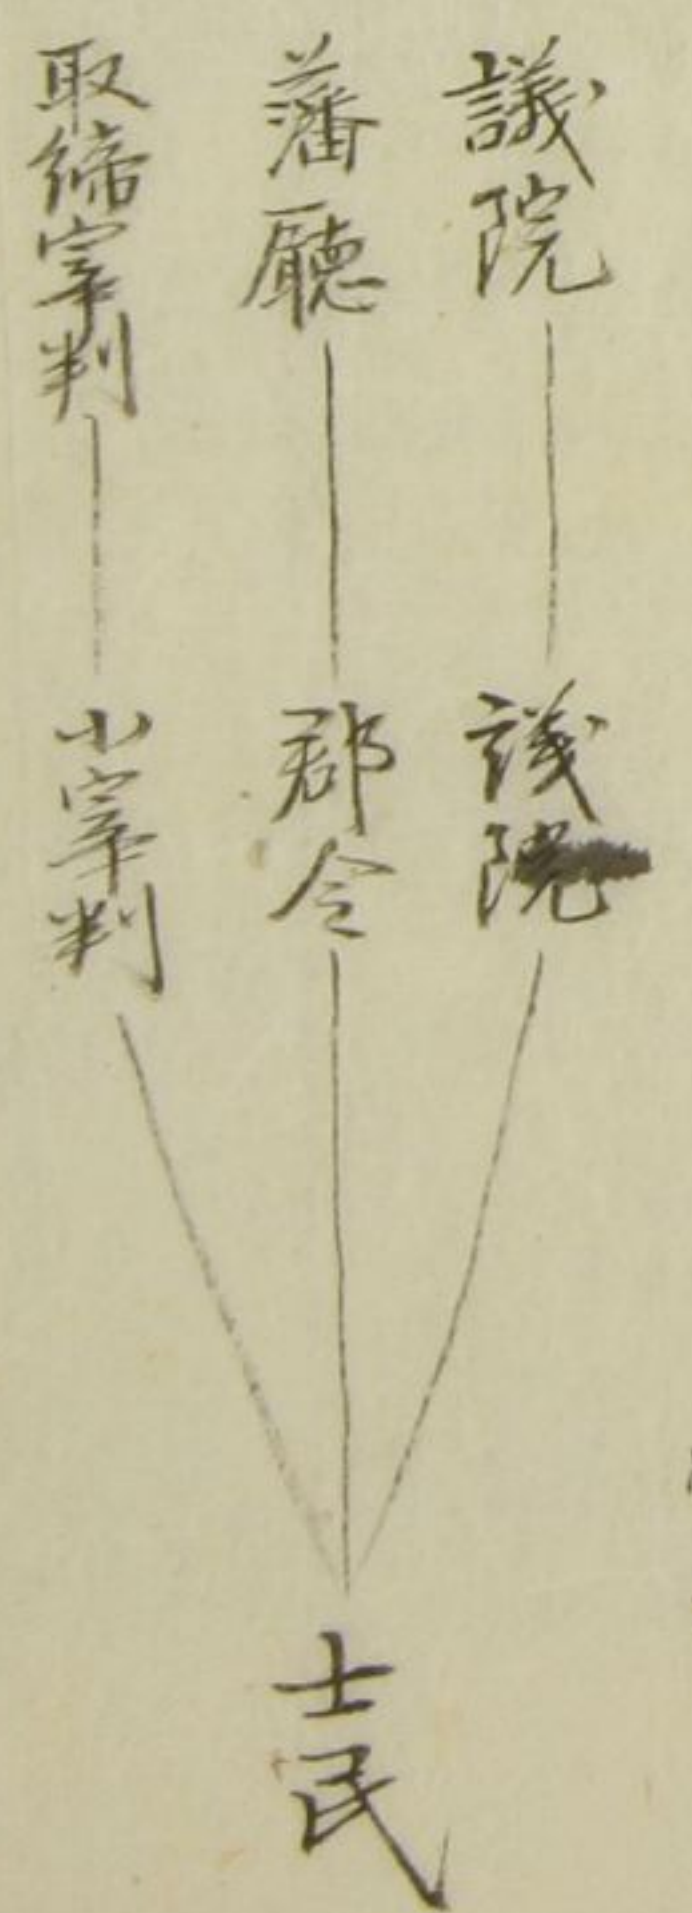 議院
議院
藩廳
郡令
取締宰判
小宰判
士民